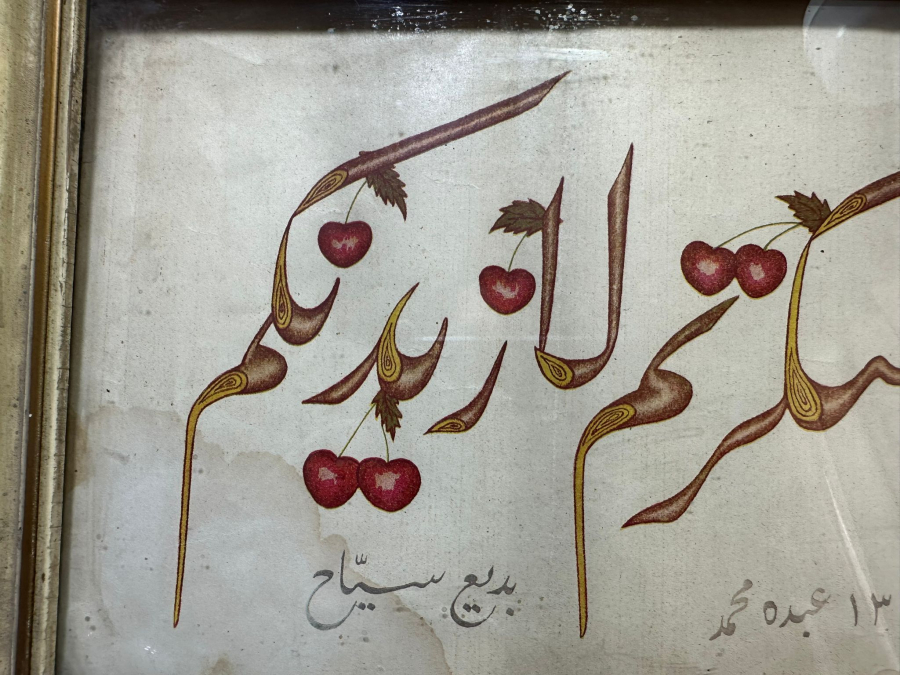 كرتم لازيدنكم
بديع سيّاح
١٣ عبده محمد